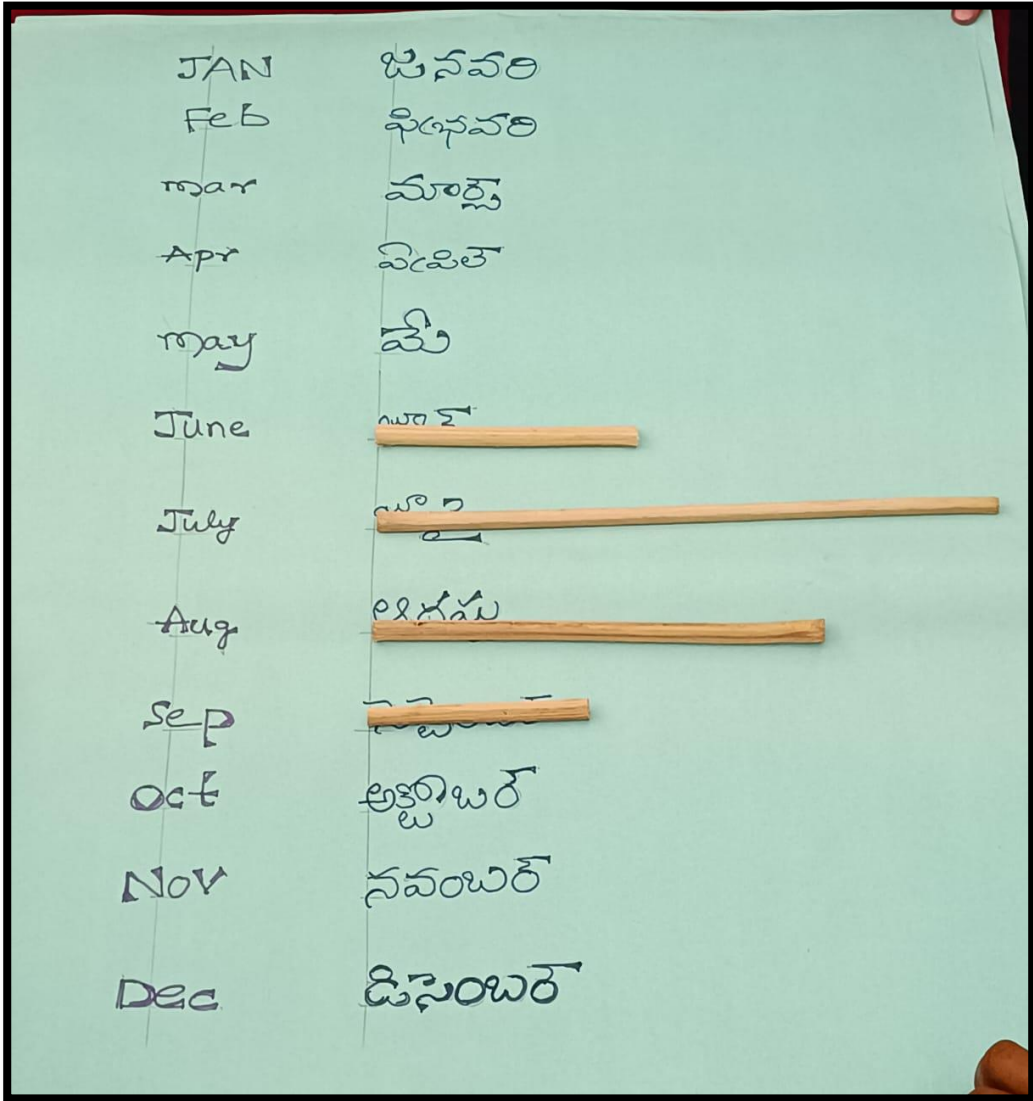 JAN జనవరి
Feb ఫిబ్రవరి
mar మార్చ్
Apr ఏప్రిల్
may మే
June
July
Aug
Sep
Oct అక్టోబర్
Nov నవంబర్
Dec డిసెంబర్